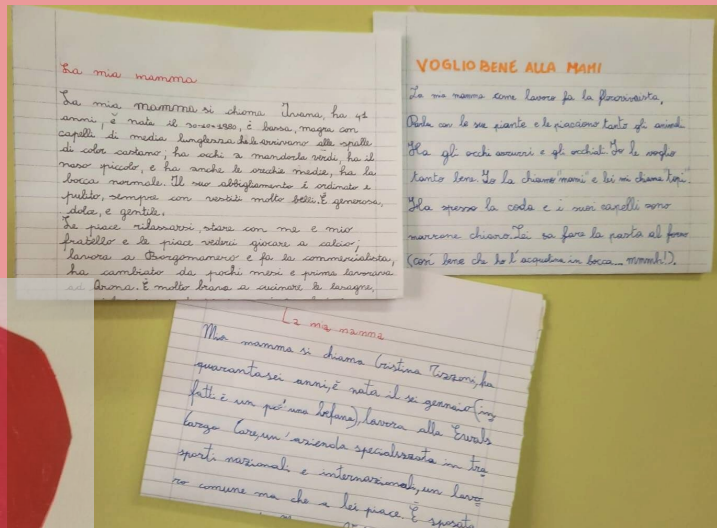 La mia mamma
La mia mamma si chiama Ivana, ha 41
anni, è nata il 30-10-1980, è bassa, magra con
capelli di media lunghezza che le arrivano alle spalle
di color castano, ha occhi a mandorla verdi, ha il
naso piccolo, e ha anche le orecchie medie, ha la
bocca normale. Il suo abbigliamento è ordinato e
pulito, sempre con vestiti molto belli. È generosa,
dolce, e gentile.
Le piace rilassarsi, stare con me e mio
fratello e le piace vederci giocare a calcio;
lavora a Borgomanero e fa la commercialista,
ha cambiato da pochi mesi e prima lavorava
ad Arona. È molto brava a cucinare le lasagne,
VOGLIO BENE ALLA MAMI
La mia mamma come lavoro fa la florovivaista,
Parla con le sue piante e le piacciono tanto gli animali
Ha gli occhi azzurri e gli occhiali. Io le voglio
tanto bene. Io la chiamo "mami" e lei mi chiama "topi".
Ha spesso la coda e i suoi capelli sono
marrone chiaro. Lei sa fare la pasta al forno
(così bene che ho l'acquolina in bocca... mmmh!).
La mia mamma
Mia mamma si chiama Cristina Tizzoni, ha
quarantasei anni, è nata il sei gennaio (in
fatti è un po' una befana), lavora alla Ewals
Cargo Care, un'azienda specializzata in tra
sporti nazionali e internazionali, un lavo
ro comune ma che a lei piace. È sposata